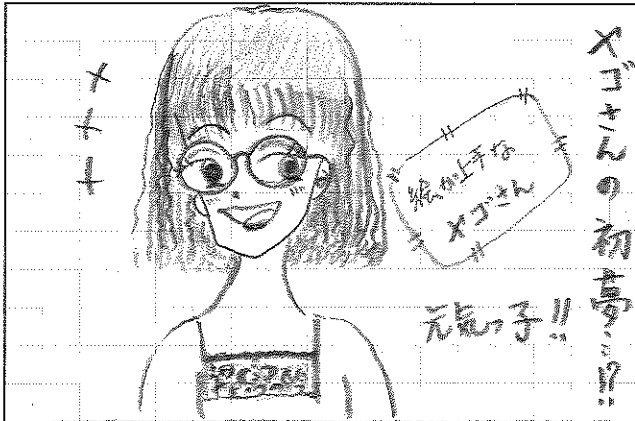 メゴさんの初夢…!?
絵が上手な
メゴさん
元気っ子!!